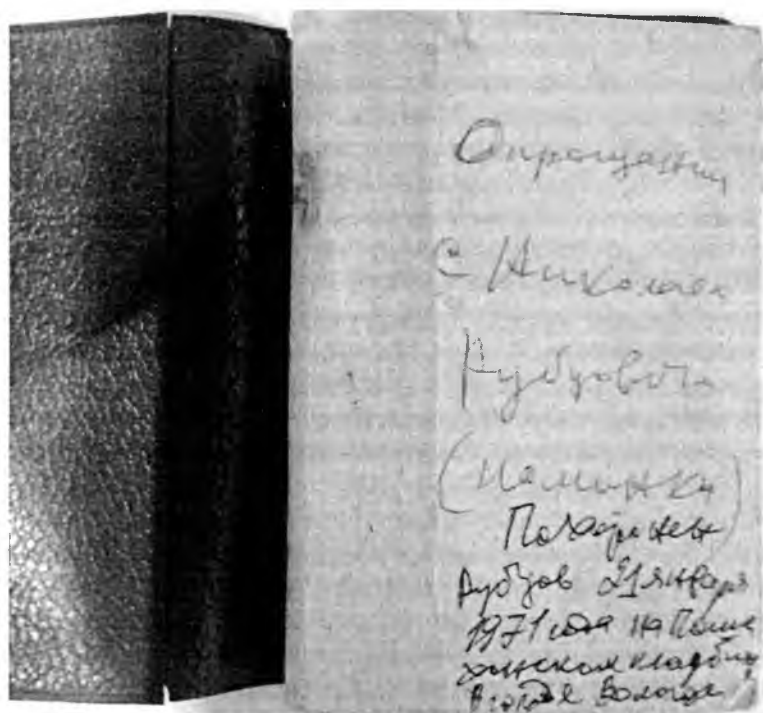 О прощании
с Николаем
Рубцовым
(поминки)
Похоронен
Рубцов 21 января
1971 года на Поше
хонском кладбище
в городе Вологде